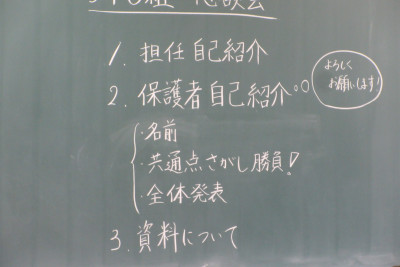 懇談会
1. 担任 自己紹介
2. 保護者自己紹介
よろしく
お願いします!
・名前
・共通点さがし勝負!
・全体発表
3. 資料について